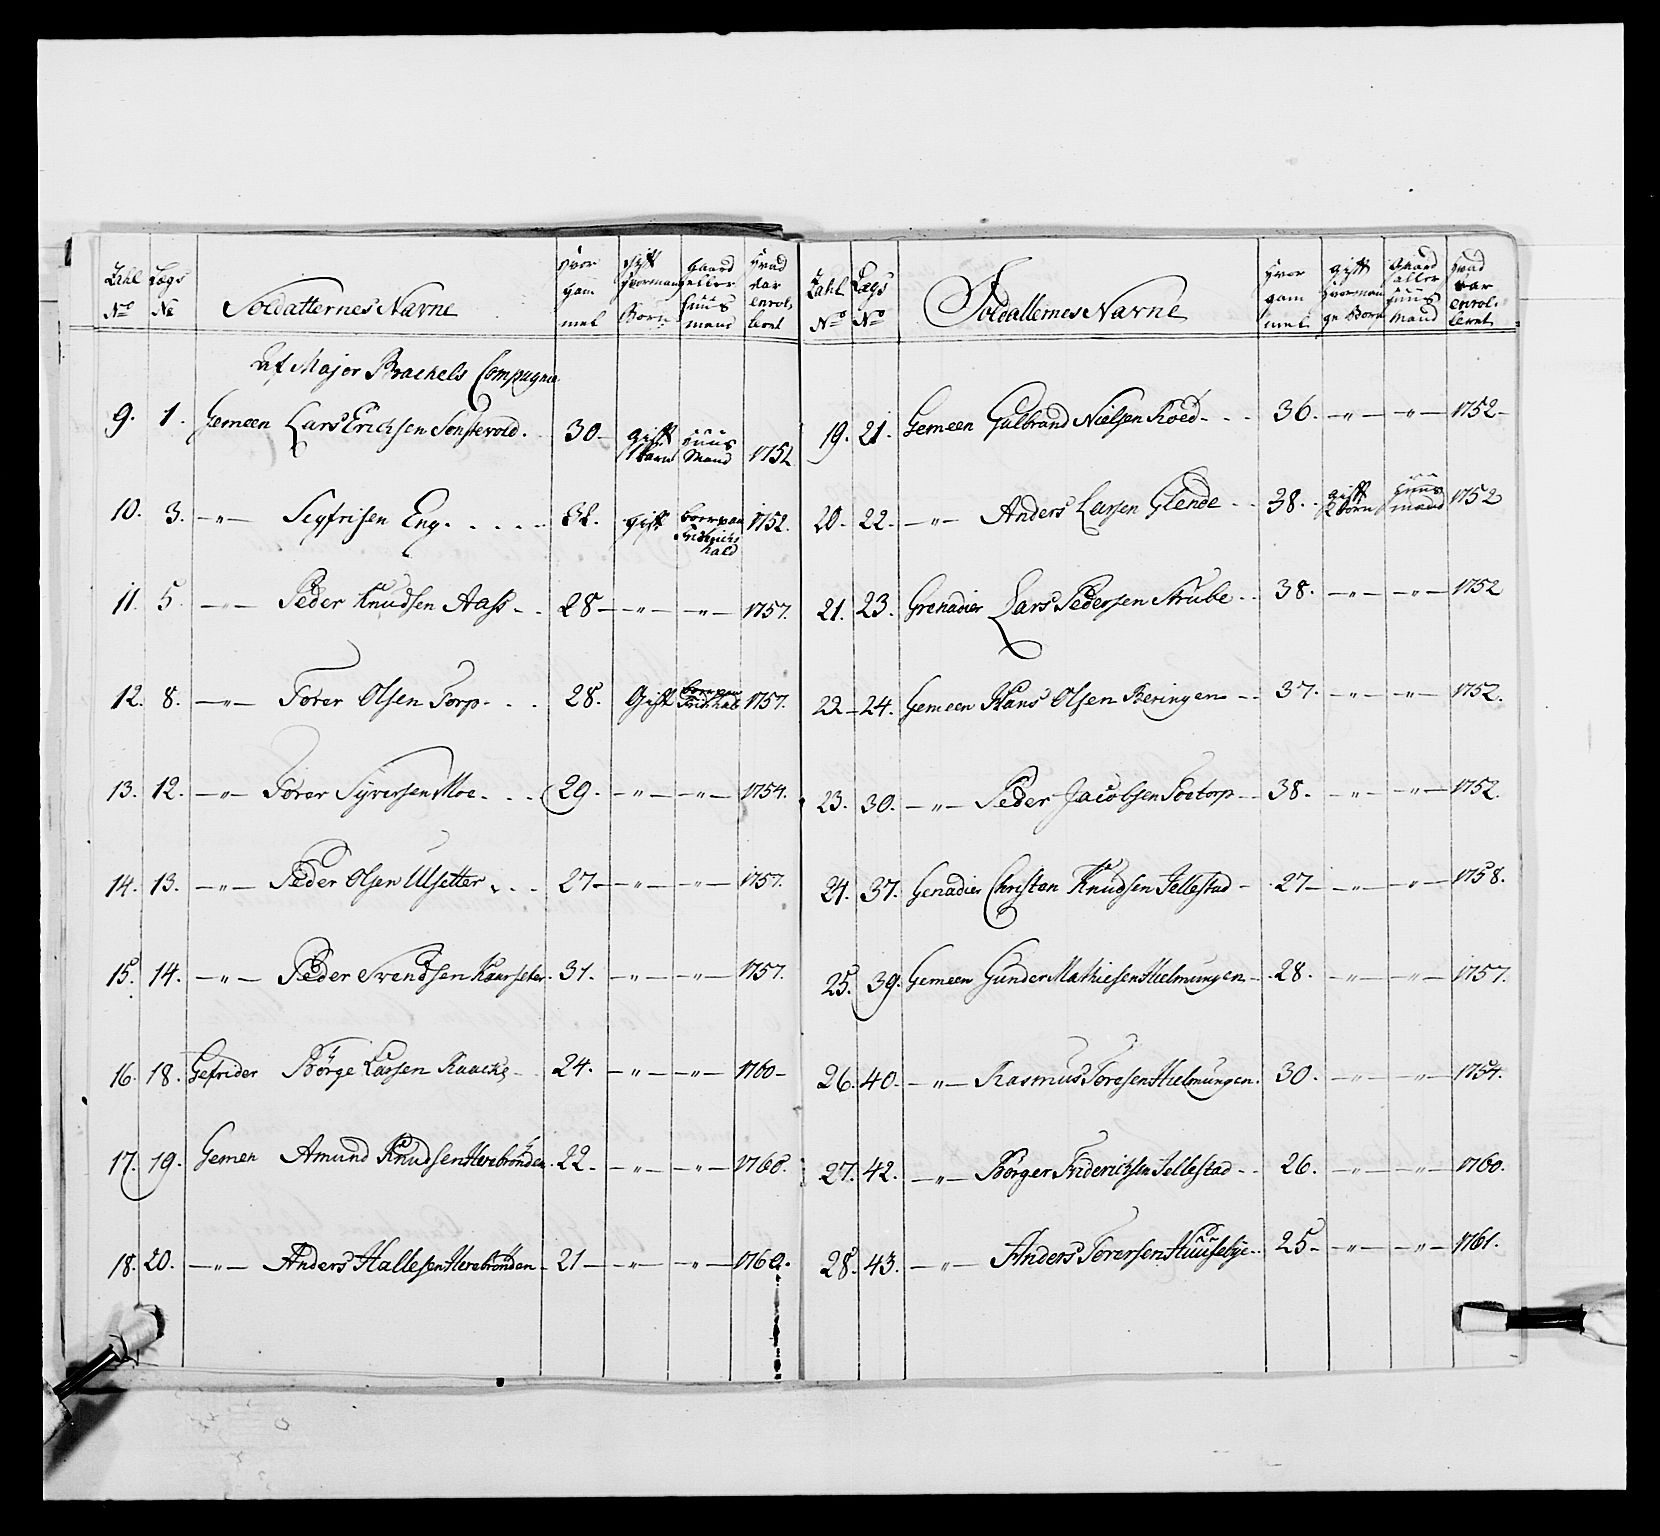 Zahl No Lægs No Soldatternes Navne hvor gam mel gift hvormang Born gaard eller huus mand hvad aar enrol leret
af Major Brachels Compagnie
9. 1. Gemeen Lars Erichsen Sonstevold. 30. gift 1 barn huus Mand 1752
10. 3. —"— Segfrisen Eng. 32. gift boer paa Fridrichs hald 1752.
11. 5. —"— Peder Knudsen Aass 28 —"— —"— 1757.
12. 8. —"— Torer Olsen Torp. 28. Gift boer paa Fridhald 1757.
13. 12. —"— Torer Syversen Moe. 29. —"— —"— 1754.
14. 13. —"— Peder Olsen Ulsetter. 27 —"— —"— 1757.
15. 14. —"— Peder Svendsen Kaurseter. 31. —"— —"— 1757.
16. 18. Gefrider Börge Larsen Raacke 24. —"— —"— 1760
17. 19. Gemen Amund Knudsen Herrebrönden. 22. —"— —"— 1760.
18. 20. —"— Anders Hallesen Herrebrönden 21 —"— —"— 1760.
Zahl No Lægs No Soldatternes Navne hvor gam mel gift hvorman ge Born Gaard aller huus Mand hvad aar enrol leret
19. 21. Gemeen Gulbrand Nielsen Roed 36. —"— —"— 1752
20. 22. —"— Anders Larsen Glende 38. gift 2 born huus mand 1752
21. 23. Grenadier Lars Pedersen Strube 38. —"— —"— 1752
22 24. Gemeen Hans Olsen Beringen 37. —"— —"— 1752.
23. 30. —"— Peder Jacobsen Soetorp 38. —"— —"— 1752.
24. 37. Genadier Christen Knudsen Jellestad 27 —"— —"— 1758.
25. 39. Gemeen Gunder Mathiesen Hielmungen 28. —"— —"— 1757.
26. 40. —"— Rasmus Toresen Hielmungen. 30. —"— —"— 1754.
27. 42. —"— Börger Friderichsen Jellestad 26. —"— —"— 1760.
28. 43. —"— Anders Torersen Huusebye 25 —"— —"— 1761.